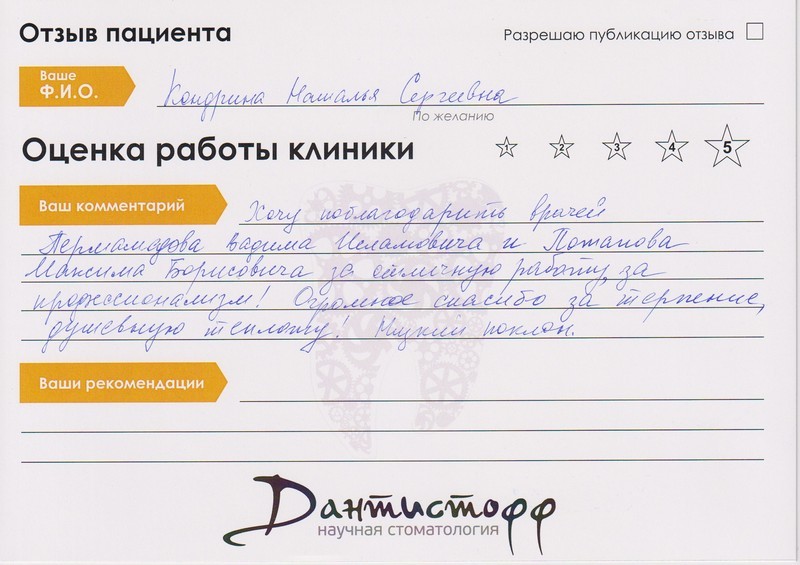 Отзыв пациента
Разрешаю публикацию отзыва
Ваше
Ф.И.О.
Кондрина Наталья Сергеевна
По желанию
Оценка работы клиники
1 2 3 4 5
Ваш комментарий
Хочу поблагодарить врачей
Пермамедова Вадима Исламовича и Потапова
Максима Борисовича за отличную работу, за
профессионализм! Огромное спасибо за терпение,
душевную теплоту! Низкий поклон.
Ваши рекомендации
Дантистофф
научная стоматология